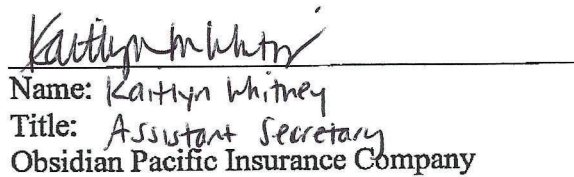 Kaitlyn M Whitney
Name: Kaitlyn Whitney
Title: Assistant Secretary
Obsidian Pacific Insurance Company